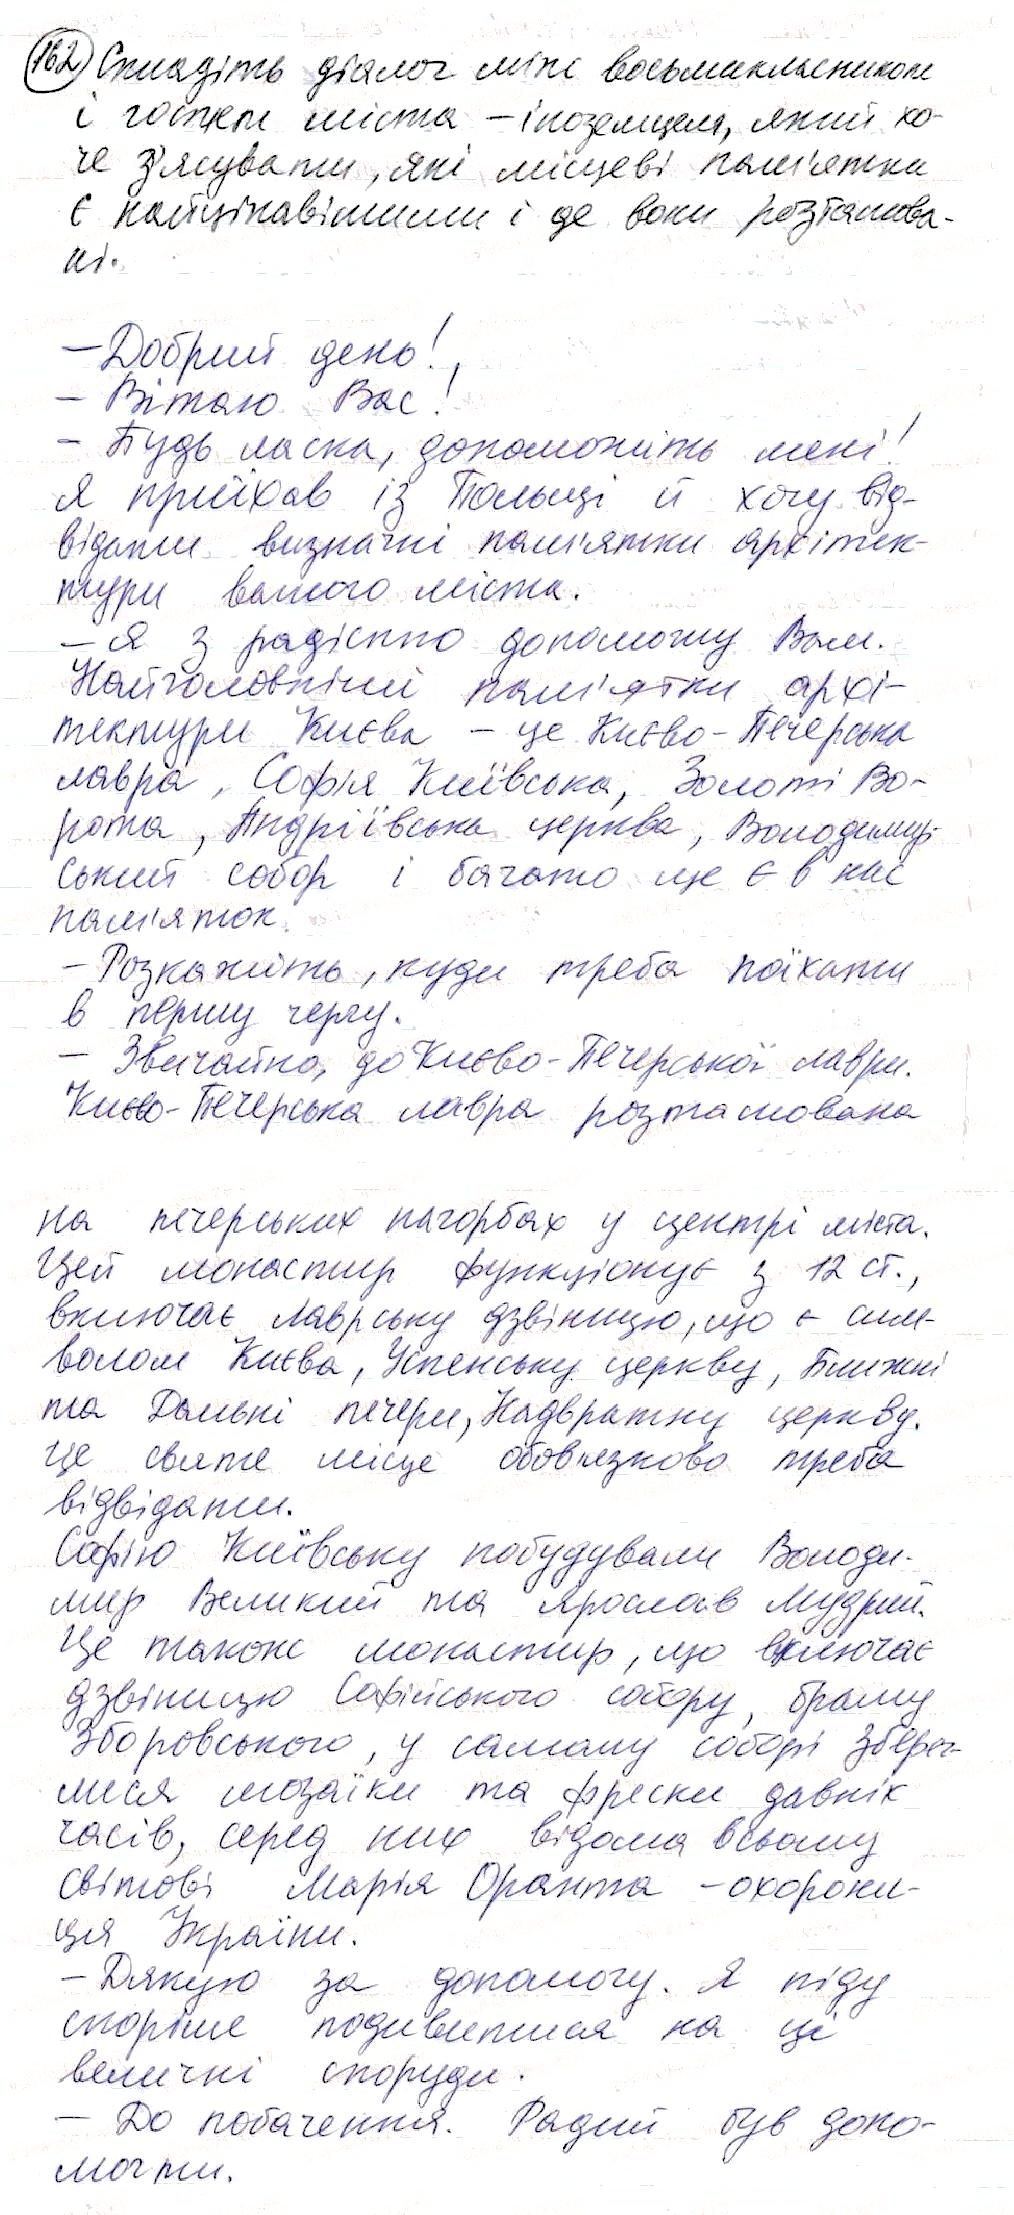 162 Складіть діалог між восьмикласником
і гостем міста – іноземцем, який хо-
че з'ясувати, які місцеві пам'ятки
є найцікавішими і де вони розташова-
ні.
– Добрий день!
– Вітаю Вас!
– Будь ласка, допоможіть мені!
Я приїхав із Польщі й хочу від-
відати визначні пам'ятки архітек-
тури вашого міста.
– Я з радістю допоможу Вам.
Найголовніші пам'ятки архі-
тектури Києва – це Києво-Печерська
лавра, Софія Київська, Золоті Во-
рота, Андріївська церква, Володимир-
ський собор і багато ще є в нас
пам'яток.
– Розкажіть, куди треба поїхати
в першу чергу.
– Звичайно, до Києво-Печерської лаври.
Києво-Печерська лавра розташована
на печерських пагорбах у центрі міста.
Цей монастир функціонує з 12 ст.,
включає Лаврську дзвіницю, що є сим-
волом Києва, Успенську церкву, Ближні
та Дальні печери, Надвратну церкву.
Це святе місце обов'язково треба
відвідати.
Софію Київську побудували Володи-
мир Великий та Ярослав Мудрий.
Це також монастир, що включає
дзвіницю Софійського собору, браму
Зборовського, у самому соборі зберег-
лися мозаїки та фрески давніх
часів, серед них відома всьому
світові Марія Оранта – охорони-
ця України.
– Дякую за допомогу. Я піду
скоріше подивитися на ці
величні споруди.
– До побачення. Радий був допо-
могти.